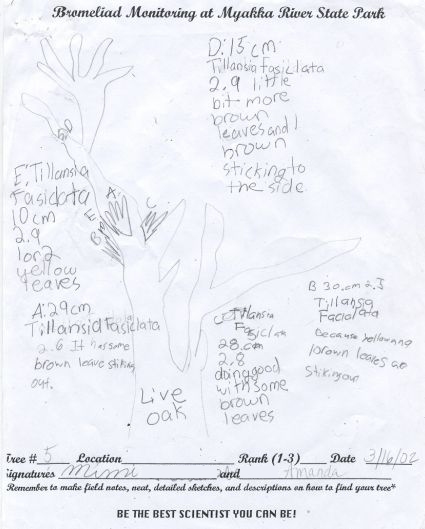 Bromeliad Monitoring at Myakka River State Park
D: 15 cm
Tillansia Fasiclata
2.9 little
bit more
brown
leaves and 1
brown
sticking to
the side.
D
A.
C
E
B
E: Tillansia
Fasidata
10 cm
2.9
1 or 2
yellow
leaves
A: 29 cm
Tillansia Fasiclata
2.6 It has some
brown leave stiking
out.
C Tillansia
Fasiclata
28 cm
2.8
doing good
with some
brown
leaves
B 30 cm 2.5
Tillansa
Facialata
because
brown leaves are
stiking out
Live
oak
Tree # 5 Location Rank (1-3) Date 3/16/02
Signatures Mimi and Amanda
*Remember to make field notes, neat, detailed sketches, and descriptions on how to find your tree*
BE THE BEST SCIENTIST YOU CAN BE!